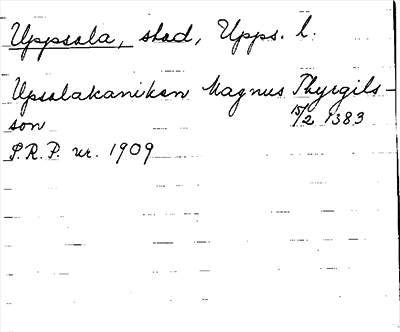 Uppsala, stad, Upps. l.
Upsalakaniken Magnus Thyrgils-
son 15/2 1383
S.R.P. nr. 1909